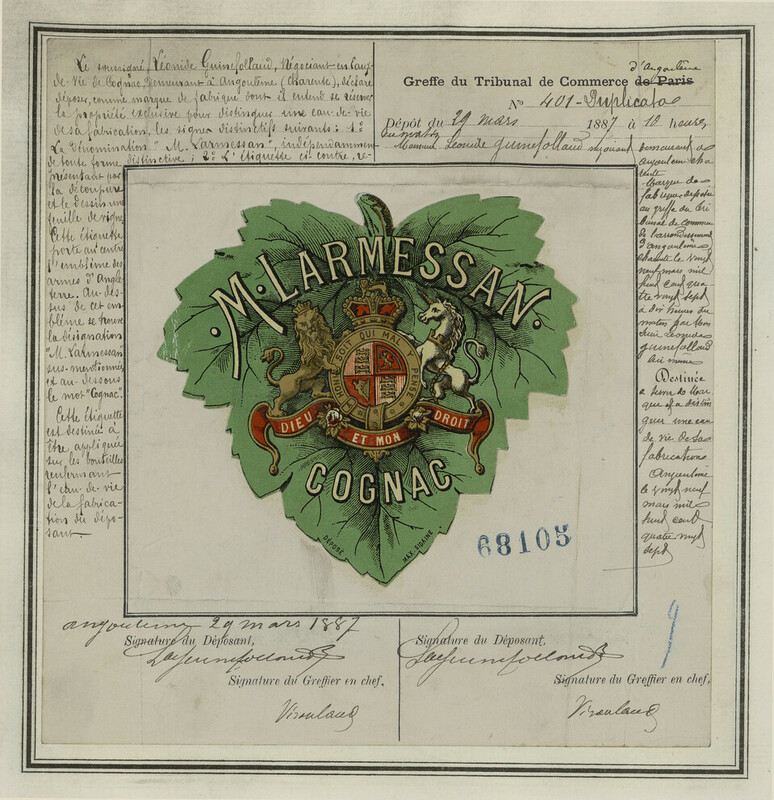 Le soussigné, Léonide Guinefollaud, Négociant en Eaux-
de-Vie de Cognac, demeurant à Angoulême (Charente), déclare
déposer, comme marque de fabrique dont il entend se réserver
la propriété exclusive pour distinguer une eau-de-vie
de sa fabrication, les signes distinctifs suivants : 1º
La Dénomination "M. Larmessan", indépendamment
de toute forme distinctive ; 2º L'Etiquette ci-contre, re-
présentant par
la découpure
et le dessin une
feuille de vigne.
Cette étiquette
porte au centre
l'emblème des
armes d'Angle-
terre. Au-des-
sus de cet em-
blème se trouve
la désignation
"M. Larmessan"
sus-mentionnée
et au-dessous
le mot "Cognac".
Cette étiquette
est destinée à
être appliquée
sur les bouteilles
renfermant
l'eau-de-vie
de la fabrica-
tion du dépo-
sant.
d'Angoulême
Greffe du Tribunal de Commerce de Paris
Nº 401 - Duplicata
Dépôt du 29 mars 1887 à 10 heures
du matin
Monsieur Léonide Guinefollaud négociant
demeurant à
angoulême cha
rente
marque de
fabrique déposée
au greffe du tri
bunal de commerce
de l'arrondissement
d'angoulême
charente le vingt
neuf mars mil
huit cent qua
tre vingt sept
à dix heures du
matin par mon
sieur Leonide
guinefollaud
lui même
Destinée
à servir de mar
que et à distin
guer une eau
de vie de sa
fabrication
Angoulême
le vingt neuf
mars mil
huit cent
quatre vingt
sept
M. LARMESSAN
HONI SOIT QUI MAL Y PENSE
DIEU ET MON DROIT
COGNAC
DÉPOSÉ
MAX. SIGAINE
68105
angoulême 29 mars 1887
Signature du Déposant,
Signature du Déposant,
Signature du Greffier en chef,
Signature du Greffier en chef.